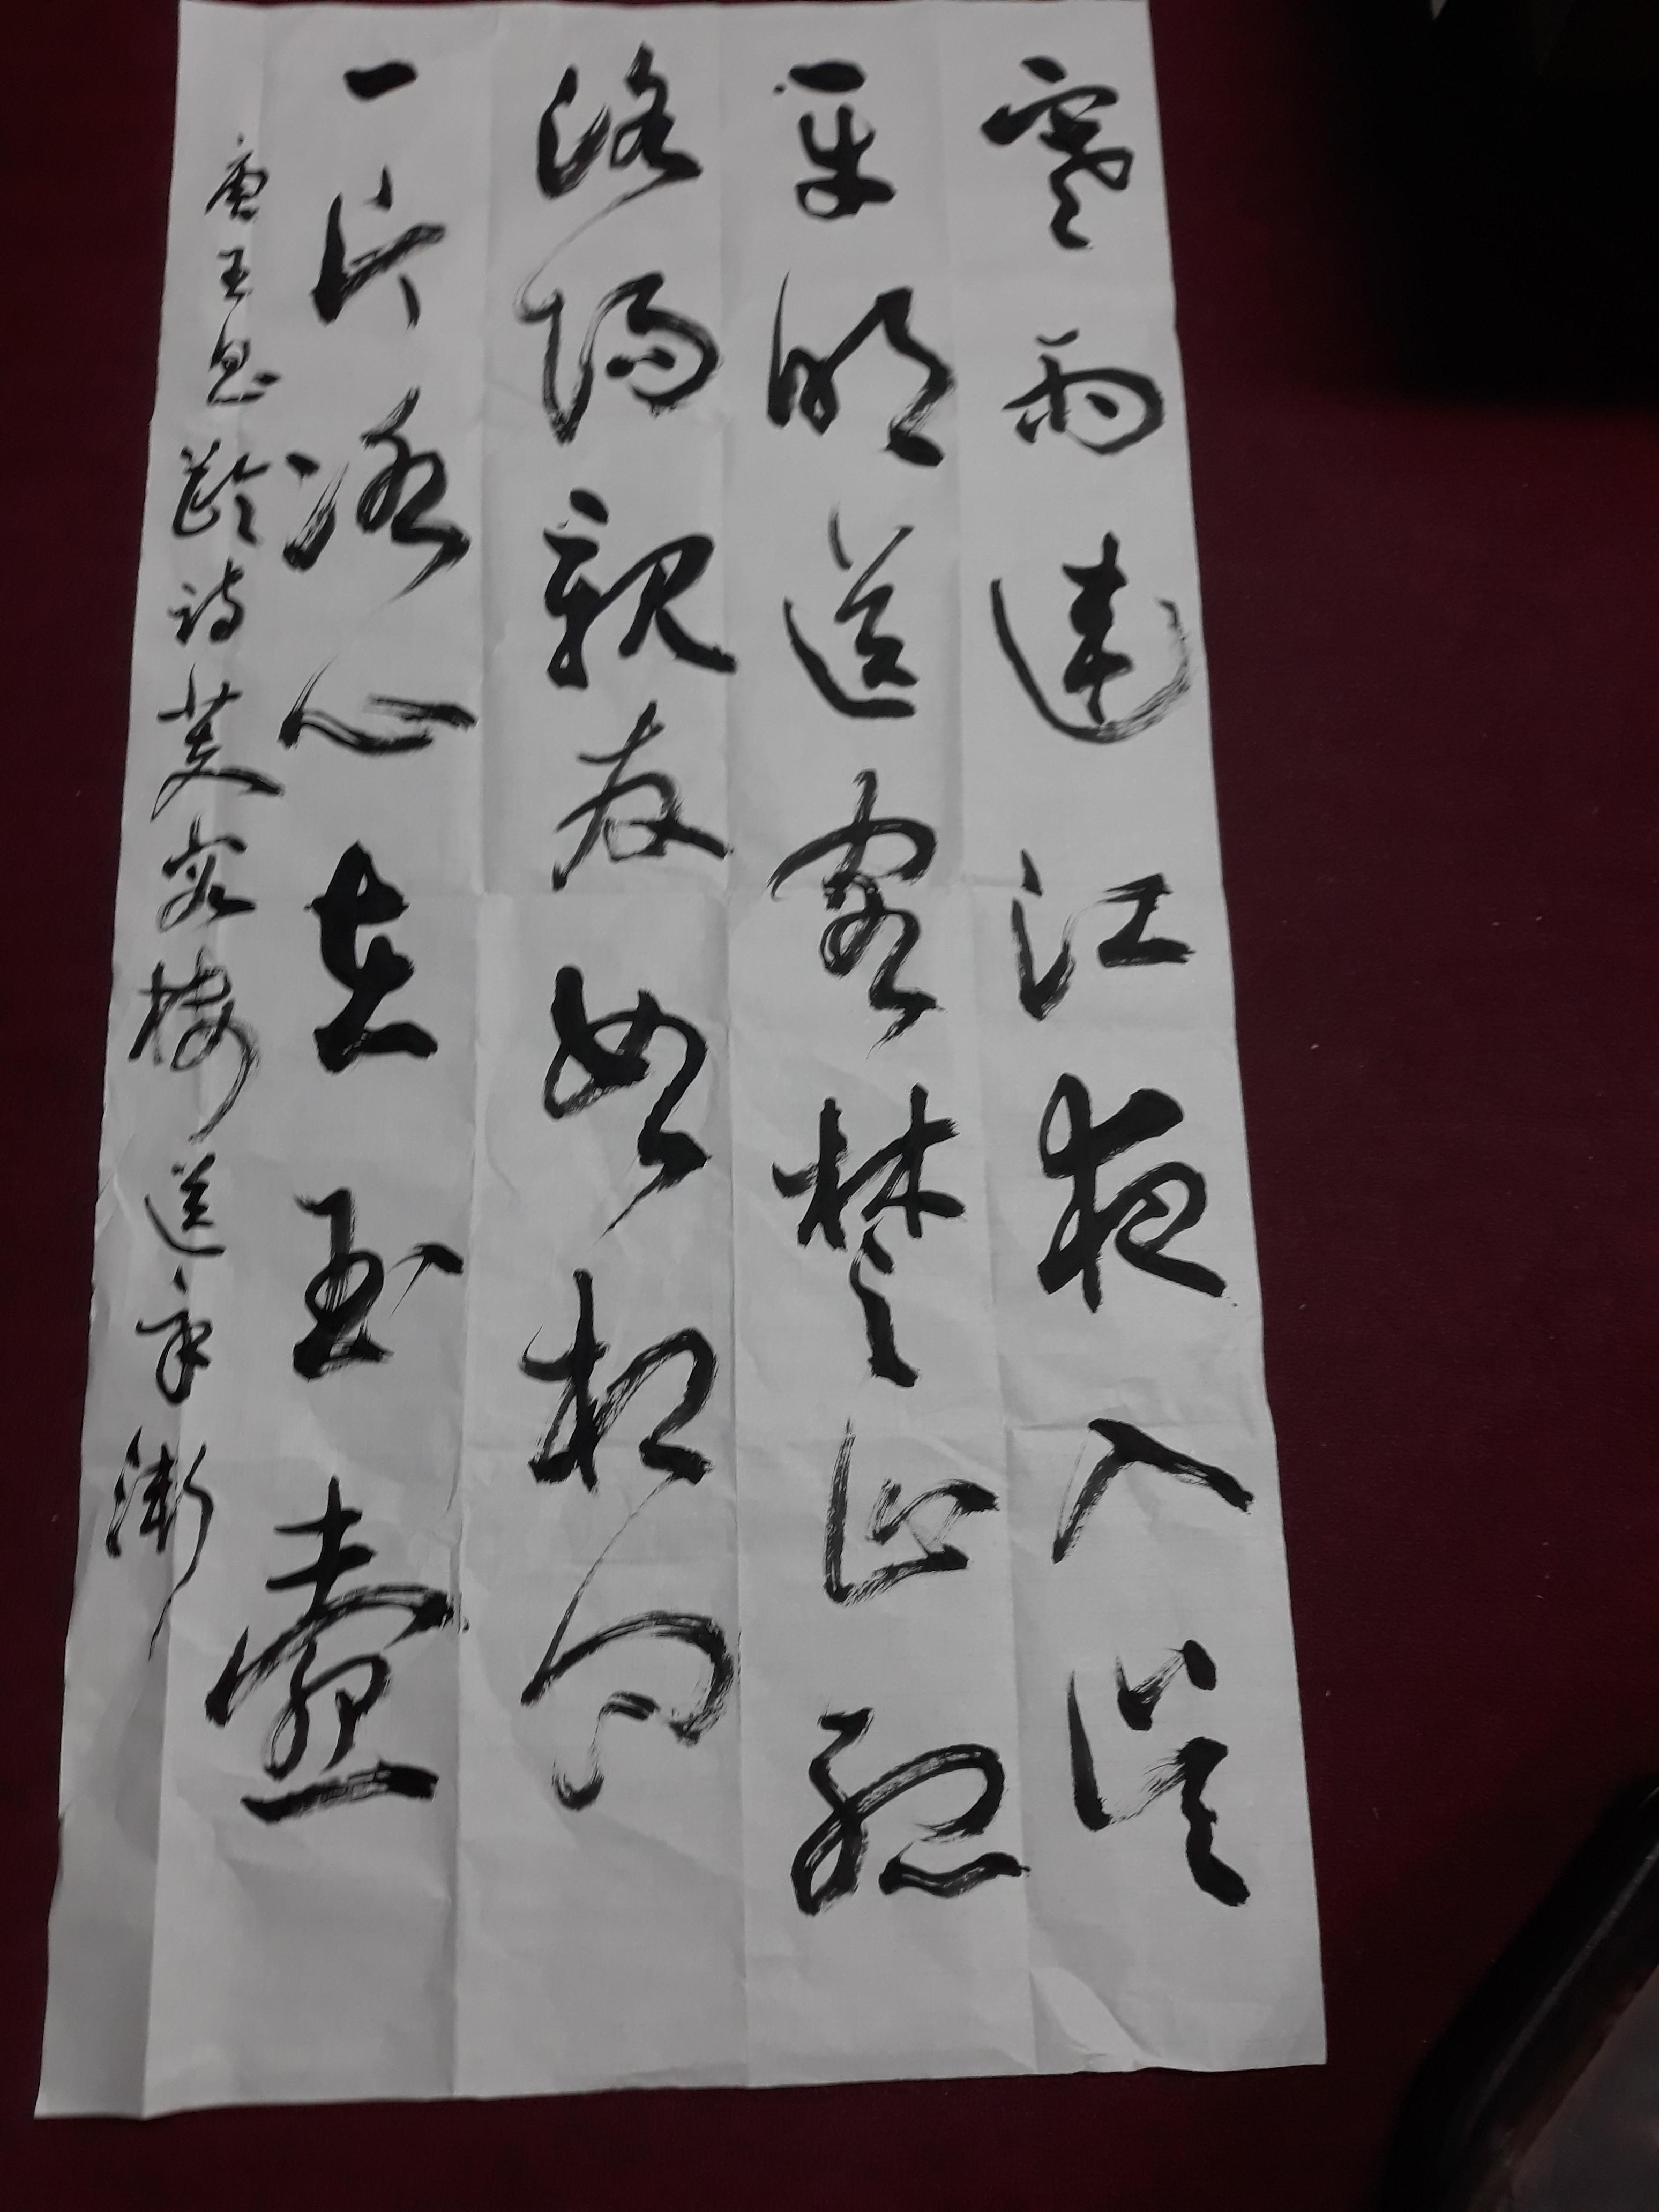 寒雨連江夜入吳
平明送客楚山孤
洛陽親友如相問
一片冰心在玉壺
唐王昌齡詩芙蓉樓送辛漸